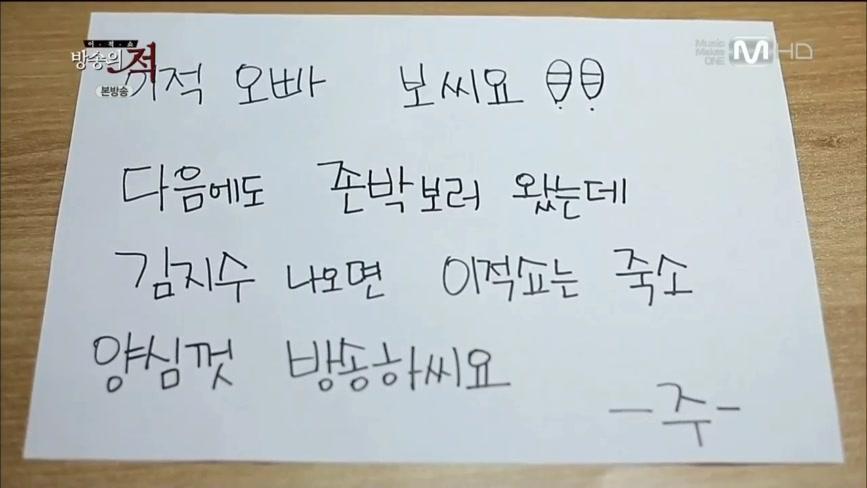 이적쇼
방송의 적
본방송
Music Makes ONE M HD
이적 오빠 보씨요
다음에도 존박보러 왔는데
김지수 나오면 이적쇼는 죽소
양심껏 방송하씨요
-주-